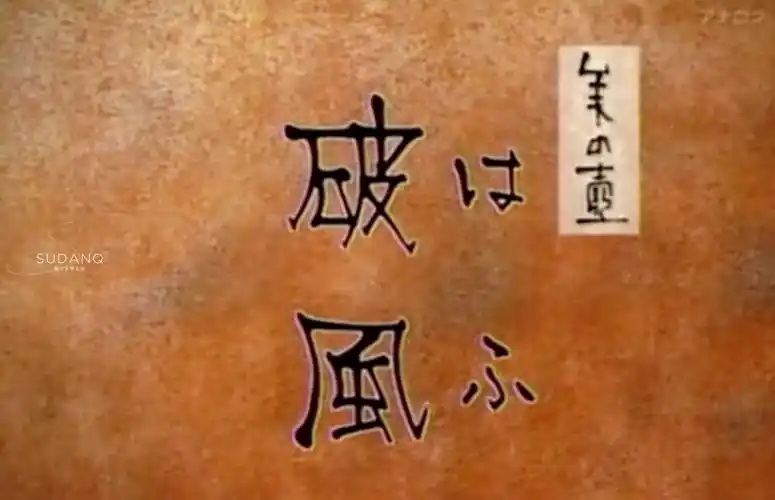 アナログ
美の壷
はふ
破風
SUDANQ